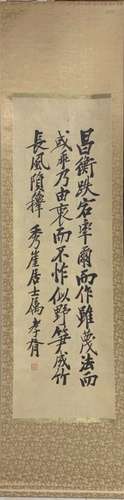 昌衡跌宕率爾而作雖蔑法而
或乖乃由衷而不怍似野筍成竹
長風隕籜 秀崖居士屬孝胥